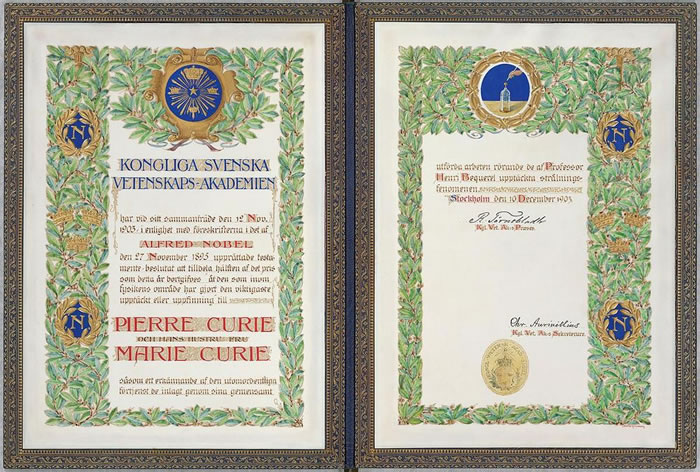 KONGLIGA SVENSKA
VETENSKAPS-AKADEMIEN
har vid sitt sammanträde den 12 Nov.
1903 i enlighet med föreskrifterna i det af
ALFRED NOBEL
den 27 November 1895 upprättade testa-
mente beslutat att tilldela hälften af det pris
som detta år bortgifves åt den som inom
fysikens område har gjort den viktigaste
upptäckt eller uppfinning till
PIERRE CURIE
OCH HANS HUSTRU FRU
MARIE CURIE
såsom ett erkännande af den utomordentliga
förtjenst de inlagt genom sina gemensamt
N
N
utförda arbeten rörande de af Professor
Henri Bequerel upptäckta strålnings-
fenomenen.
Stockholm den 10 December 1903
R. Törnebladh
Kgl. Vet. Ak:s Præses.
Chr. Aurivillius
Kgl. Vet. Ak:s Sekreterare.
N
N